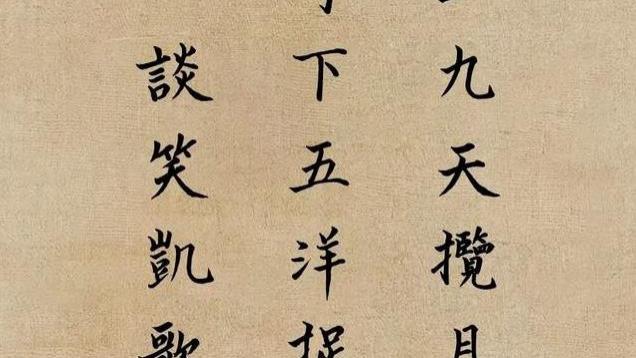 九天攬月
下五洋捉
談笑凱歌